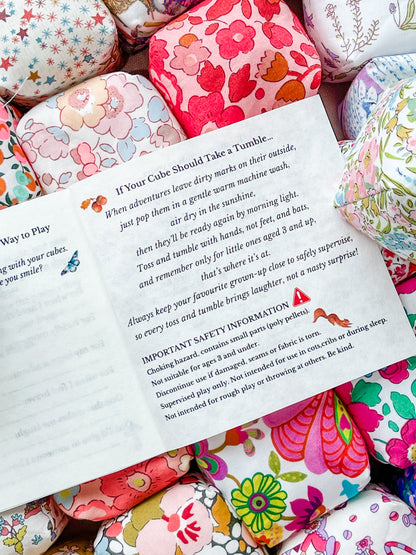 Way to Play
ng with your cubes.
you smile?
If Your Cube Should Take a Tumble...
When adventures leave dirty marks on their outside,
just pop them in a gentle warm machine wash,
air dry in the sunshine,
then they'll be ready again by morning light.
Toss and tumble with hands, not feet, and bats,
and remember only for little ones aged 3 and up,
that's where it's at.
Always keep your favourite grown-up close to safely supervise,
so every toss and tumble brings laughter, not a nasty surprise!
IMPORTANT SAFETY INFORMATION
Choking hazard, contains small parts (poly pellets).
Not suitable for ages 3 and under.
Discontinue use if damaged, seams or fabric is torn.
Supervised play only. Not intended for use in cots,cribs or during sleep.
Not intended for rough play or throwing at others. Be kind.